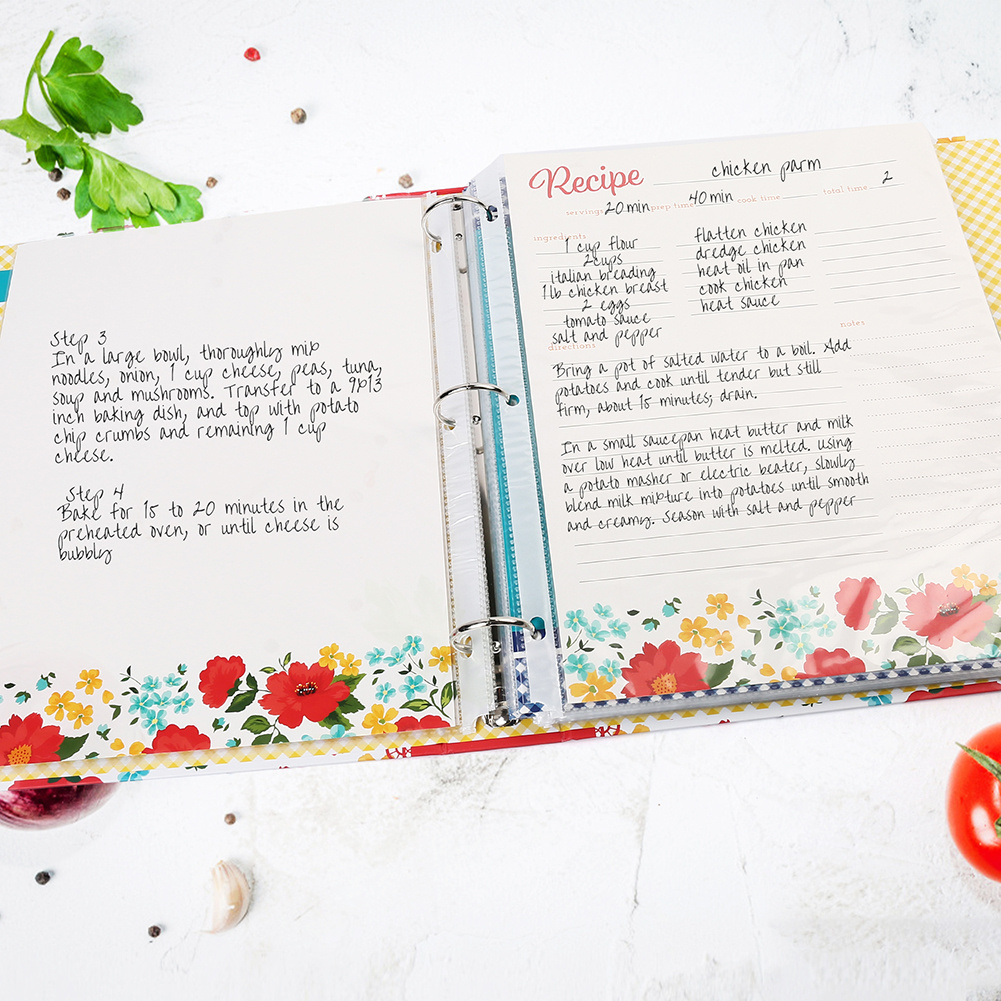 Step 3
In a large bowl, thoroughly mix
noodles, onion, 1 cup cheese, peas, tuna,
soup and mushrooms. Transfer to a 9x13
inch baking dish, and top with potato
chip crumbs and remaining 1 cup
cheese.
Step 4
Bake for 15 to 20 minutes in the
preheated oven, or until cheese is
bubbly
Recipe chicken parm
servings 20 min prep time 40 min cook time total time 2
ingredients
1 cup flour
2 cups
italian breading
1 lb chicken breast
2 eggs
tomato sauce
salt and pepper
flatten chicken
dredge chicken
heat oil in pan
cook chicken
heat sauce
directions
notes
Bring a pot of salted water to a boil. Add
potatoes and cook until tender but still
firm, about 15 minutes; drain.
In a small saucepan heat butter and milk
over low heat until butter is melted. Using
a potato masher or electric beater, slowly
blend milk mixture into potatoes until smooth
and creamy. Season with salt and pepper